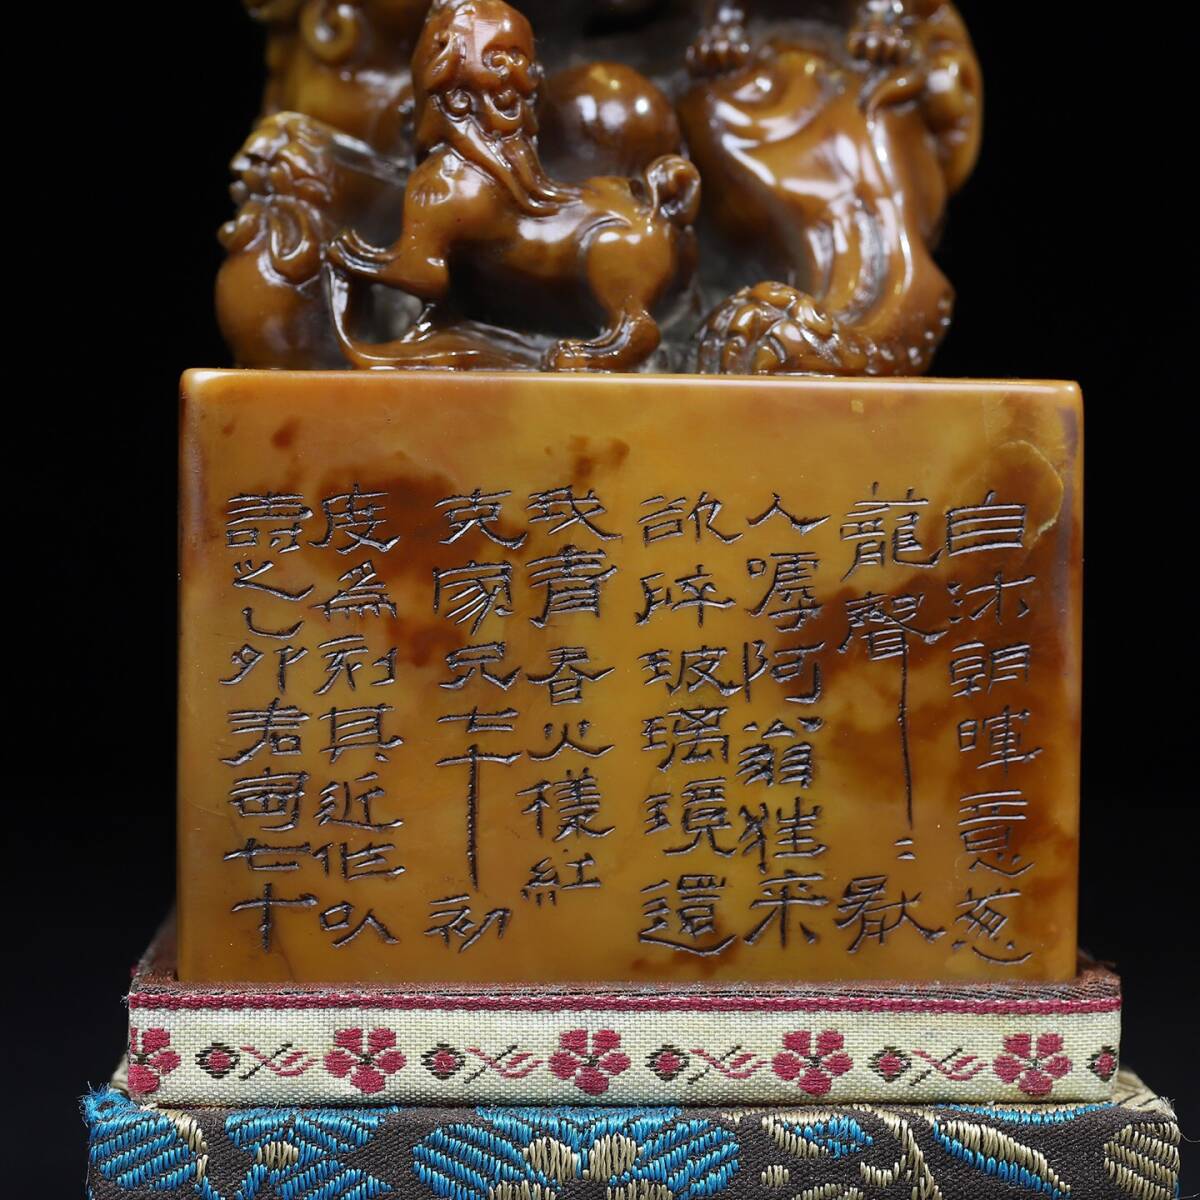 自沐朝暉意蔥
蘢聲二猒
人嘑阿翁狂来
欲碎玻璃境還
我青春火樣紅
克家兄七十初
度為刻其近作以
壽之乙卯君匋七十